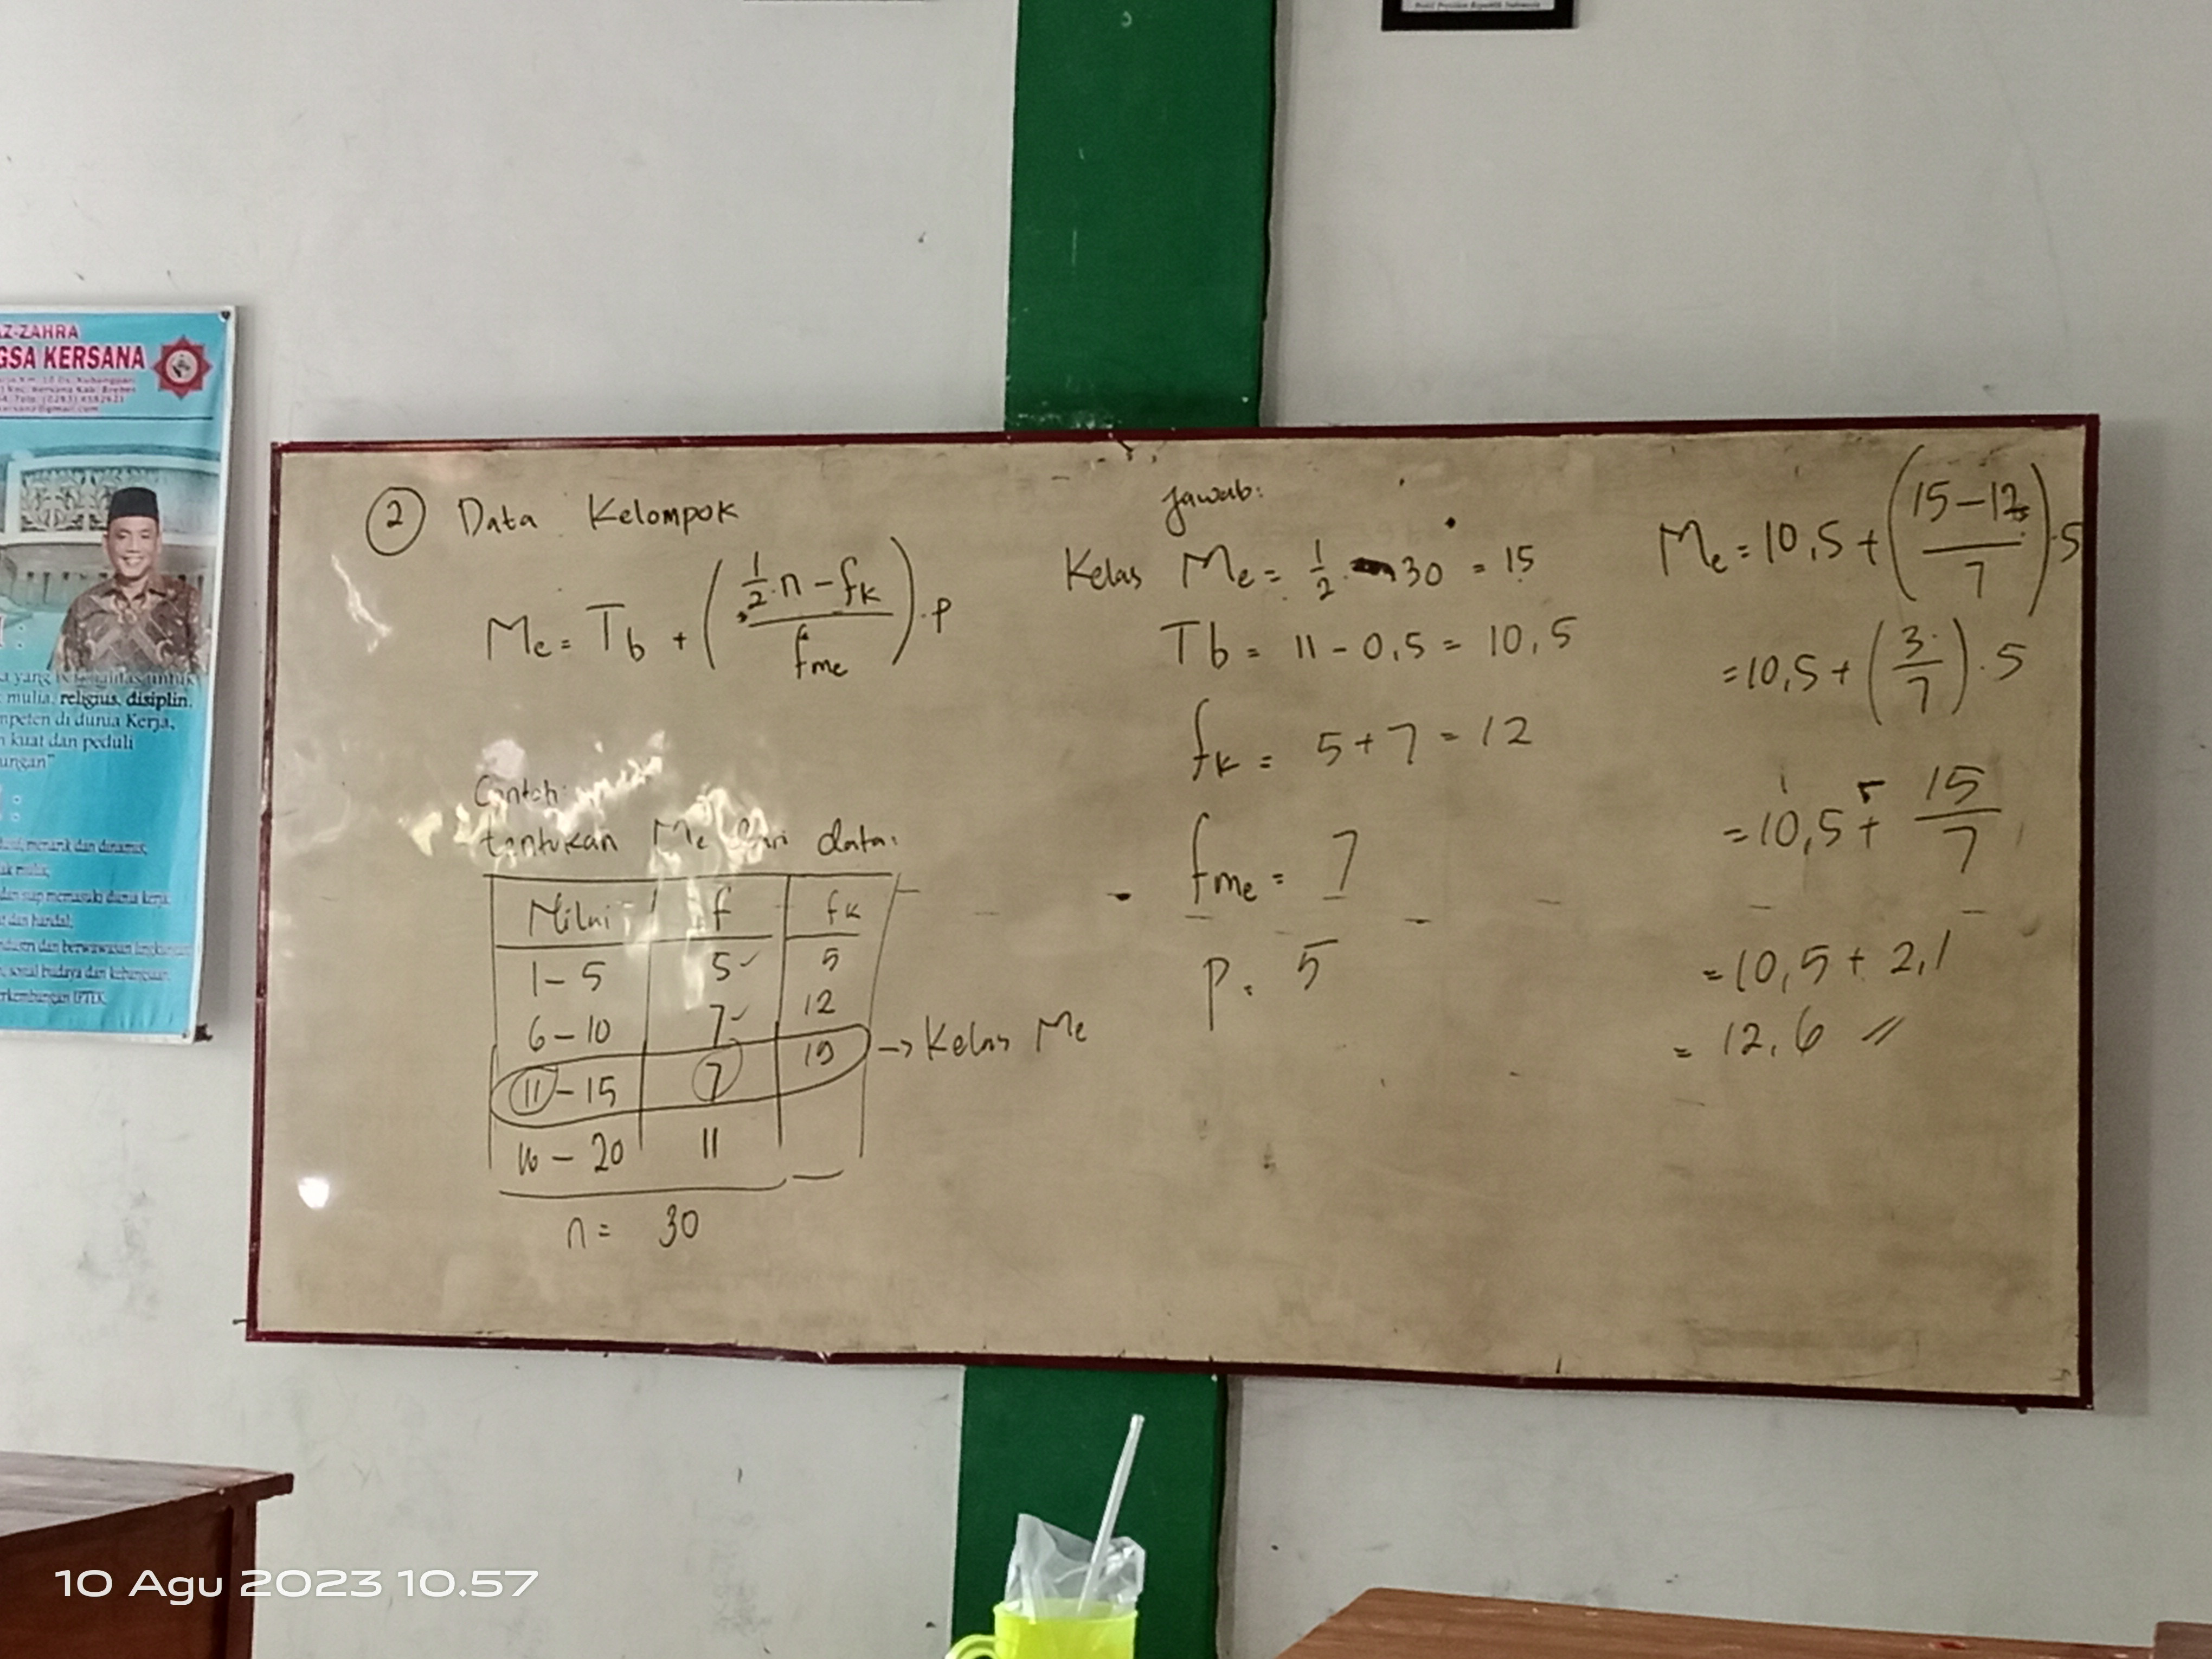 AZ-ZAHRA
GSA KERSANA
mulia, religius, disiplin,
mpeten di dunia Kerja,
kuat dan peduli
ungan"
menarik dan dinamis,
dan siap memasuki dunia kerja
dan handal,
dan berwawasan
sosial budaya dan kebangsaan
rkembangan IPTEK
2 Data Kelompok
Me = Tb + (½ . n − fk / fme) . p
Contoh:
tentukan Me dari data:
Nilai f fk
1 – 5 5 5
6 – 10 7 12
11 – 15 7 19 → Kelas Me
16 – 20 11
n = 30
Jawab:
Kelas Me = ½ . 30 = 15
Tb = 11 – 0,5 = 10,5
fk = 5 + 7 = 12
fme = 7
p = 5
Me = 10,5 + (15 – 12 / 7) . 5
= 10,5 + (3 / 7) . 5
= 10,5 + 15 / 7
= 10,5 + 2,1
= 12,6 //
10 Agu 2023 10.57